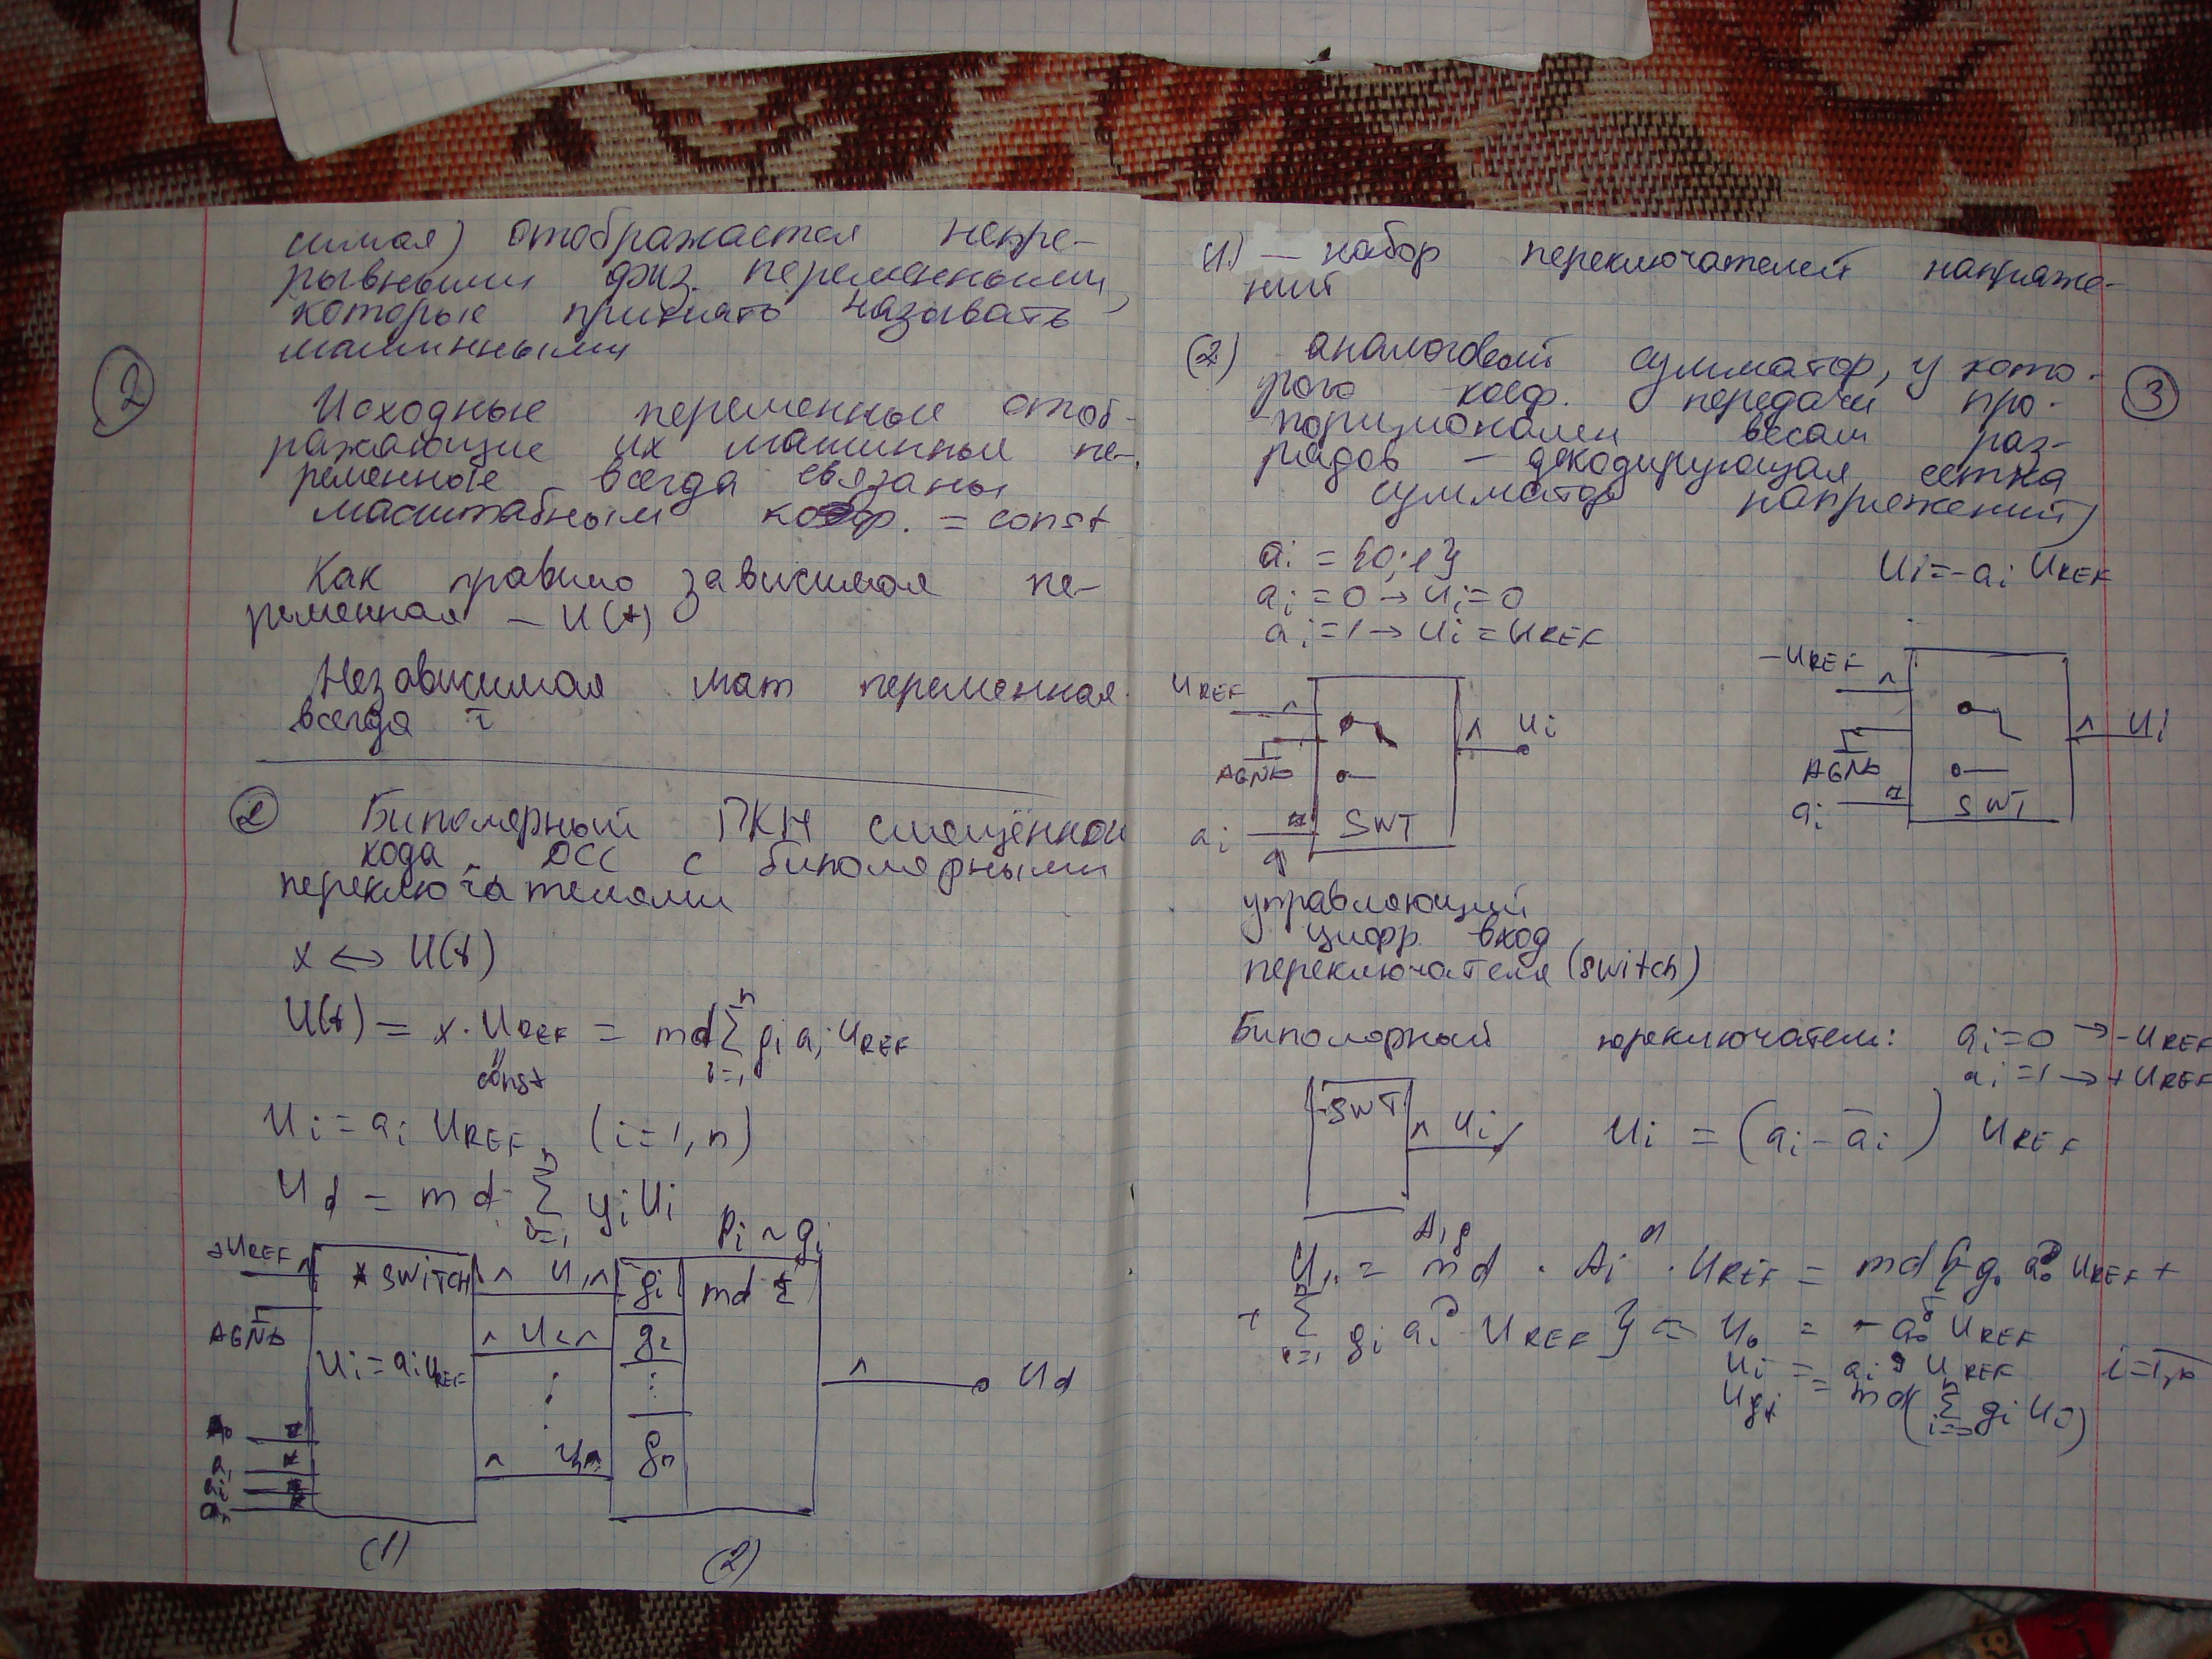 симая) отображается непре-
рывными физ. переменными,
которые принято называть
машинными
2
Исходные переменные отоб-
ражающие их машинные пе-
ременные всегда связаны
масштабным коэф. = const
Как правило зависимая пе-
ременная – U(t)
Независимая мат переменная
всегда τ
2 Биполярный ПКН смещённого
кода ДСС с биполярными
переключателями
x ⟷ U(t)
U(t) = x · U_REF = md Σ g_i a_i U_REF
const i=1 n
U_i = a_i U_REF (i=1,n)
U_d = md · Σ g_i U_i
i=1 n
p_i ~ g_i
+U_REF ^ SWITCH ^ U_1 ^ g_1 md Σ
AGND ^ U_2 ^ g_2
U_i = a_i U_REF ⋮ ⋮ ^ U_d
a_1
a_i ^ U_n ^ g_n
a_n
(1) (2)
(1) — набор переключателей напряже-
ний
(2) аналоговый сумматор, у кото-
рого коэф. передачи про-
порционален весам раз-
рядов – декодирующая сетка
сумматор напряжений)
3
a_i = {0;1}
a_i = 0 → U_i = 0
a_i = 1 → U_i = U_REF
U_i = -a_i U_REF
U_REF ^ ^ U_i
AGND
a_i SWT
-U_REF ^ ^ U_i
AGND
a_i SWT
управляющий
цифр. вход
переключателя (switch)
Биполярный переключатель: a_i = 0 → -U_REF
a_i = 1 → +U_REF
SWT ^ U_i U_i = (a_i - ā_i) U_REF
= md · A_i · U_REF = md {-g_0 a_0 U_REF +
+ Σ g_i a_i U_REF} U_0 = - a_0 U_REF
i=1 n
U_i = a_i U_REF
= md ( Σ g_i U_i)